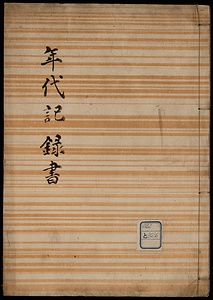 年代記録書